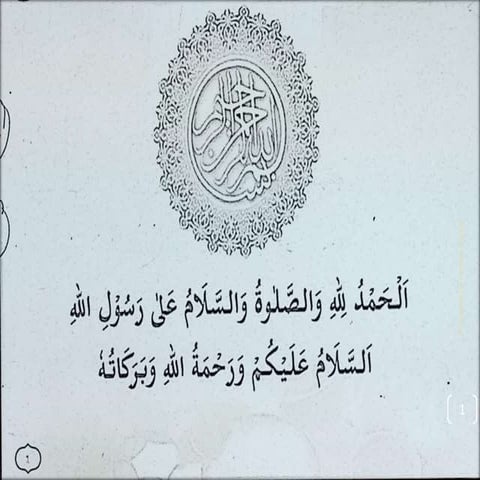 بسم الله الرحمن الرحيم
اَلْحَمْدُ لِلّٰهِ وَالصَّلٰوةُ وَالسَّلَامُ عَلٰى رَسُوْلِ اللهِ
اَلسَّلَامُ عَلَيْكُمْ وَرَحْمَةُ اللهِ وَبَرَكَاتُهٗ
1